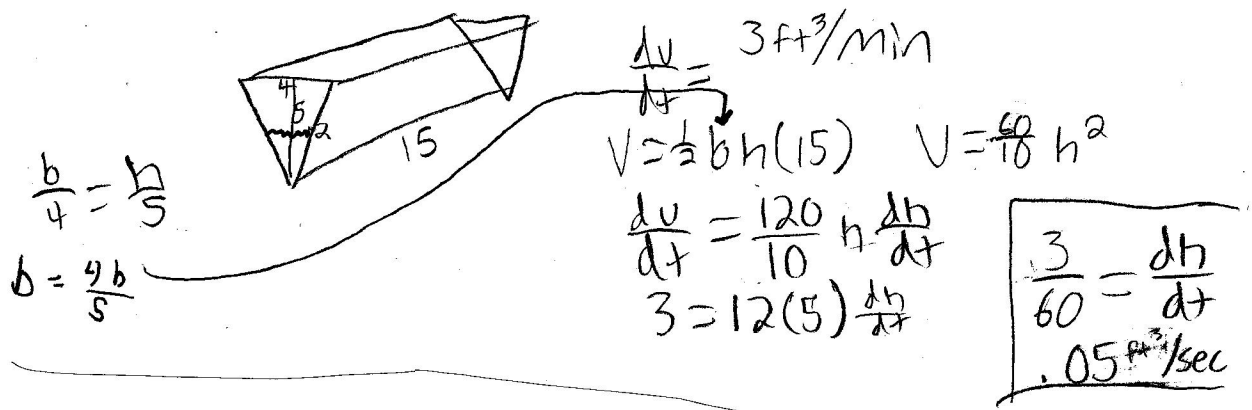 4
5
2
15
b/4 = h/5
b = 4h/5
dv/dt = 3ft³/min
V = ½bh(15) V = 60/10 h²
dv/dt = 120/10 h dh/dt
3 = 12(5) dh/dt
3/60 = dh/dt
.05 ft³/sec